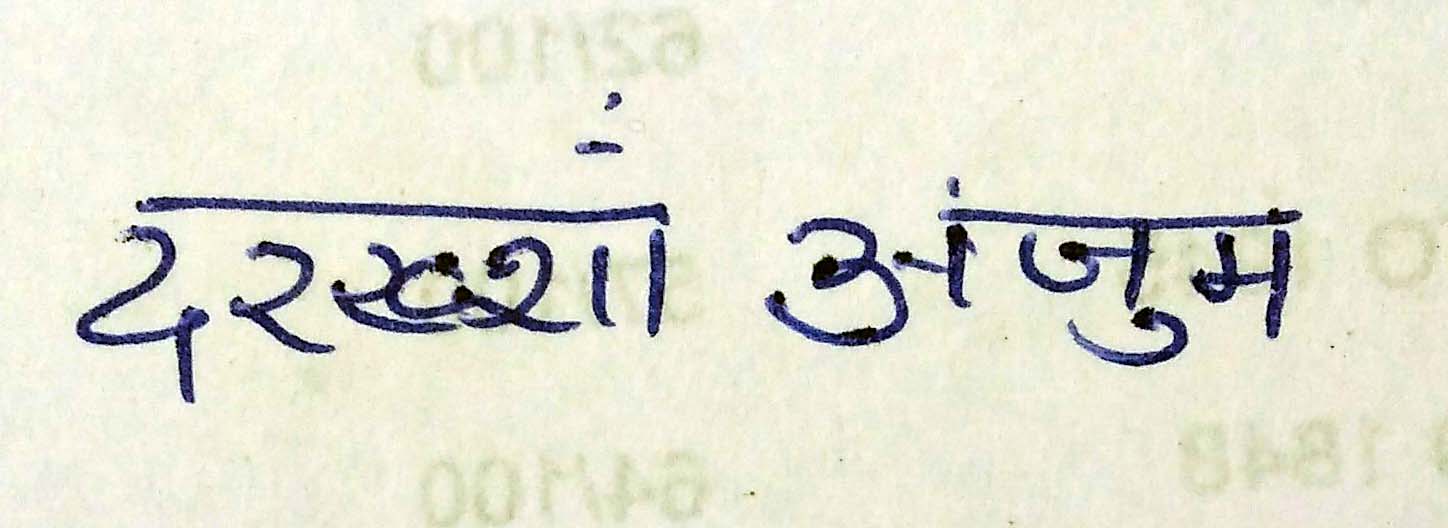 दरख्शाँ अंजुम